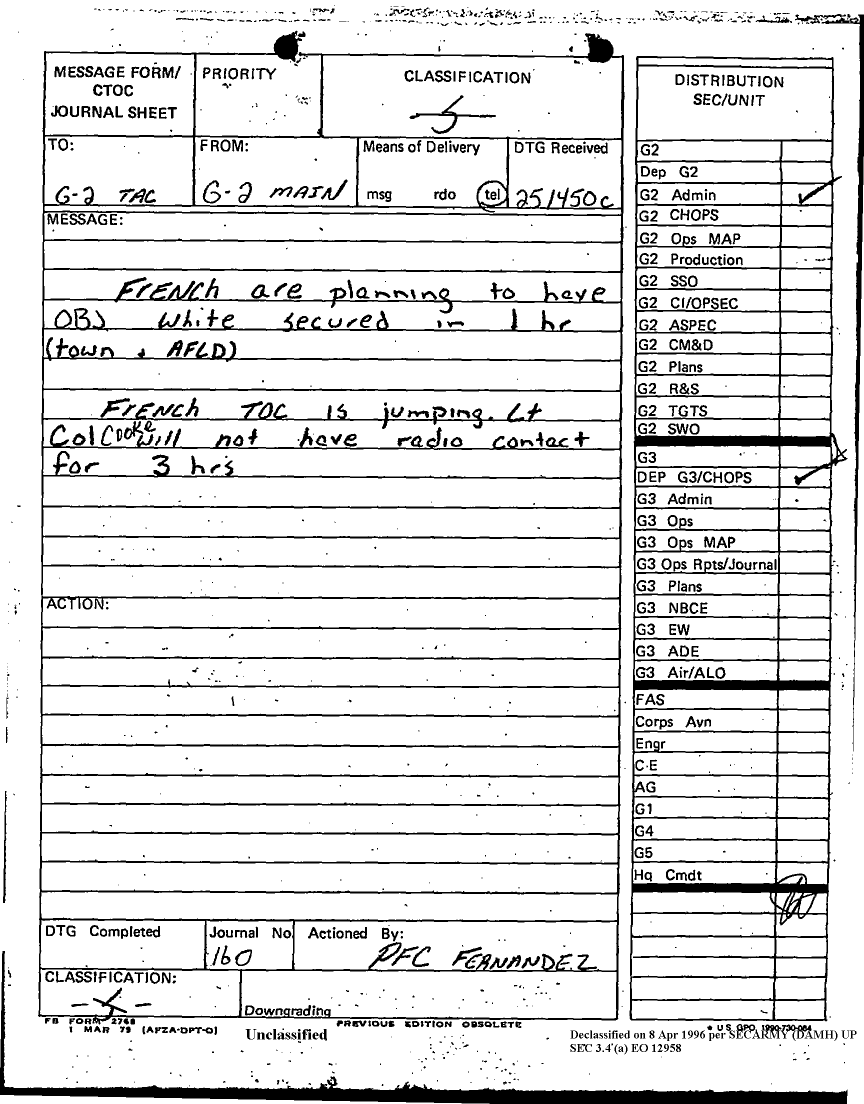 MESSAGE FORM/
CTOC
JOURNAL SHEET
PRIORITY
CLASSIFICATION
S
TO:
G-2 TAC
FROM:
G-2 MAIN
Means of Delivery
msg rdo tel
DTG Received
251450c
MESSAGE:
FrENCh are planning to have
OBJ White secured in 1 hr
(town + AFLD)
FrENCh TOC is jumping. Lt
Col Cooke will not have radio contact
for 3 hrs
ACTION:
DTG Completed
Journal No.
160
Actioned By:
PFC FERNANDEZ
CLASSIFICATION:
S
Downgrading
FB FORM 2768
1 MAR 79 (AFZA-DPT-O)
PREVIOUS EDITION OBSOLETE
Unclassified
* U.S. GPO 1990-730-084
Declassified on 8 Apr 1996 per SECARMY (DAMH) UP
SEC 3.4 (a) EO 12958
DISTRIBUTION
SEC/UNIT
G2
Dep G2
G2 Admin
G2 CHOPS
G2 Ops MAP
G2 Production
G2 SSO
G2 CI/OPSEC
G2 ASPEC
G2 CM&D
G2 Plans
G2 R&S
G2 TGTS
G2 SWO
G3
DEP G3/CHOPS
G3 Admin
G3 Ops
G3 Ops MAP
G3 Ops Rpts/Journal
G3 Plans
G3 NBCE
G3 EW
G3 ADE
G3 Air/ALO
FAS
Corps Avn
Engr
C-E
AG
G1
G4
G5
Hq Cmdt